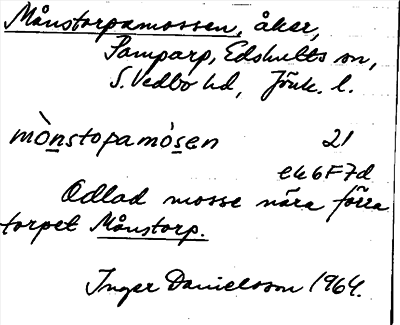 Månstorpamossen, åker,
Samparp, Edshults sn,
S. Vedbo hd, Jönk. l.
mò̱nstopamò̱sen 21
e46F7d
Odlad mosse nära förra
torpet Månstorp.
Inger Danielsson 1964.